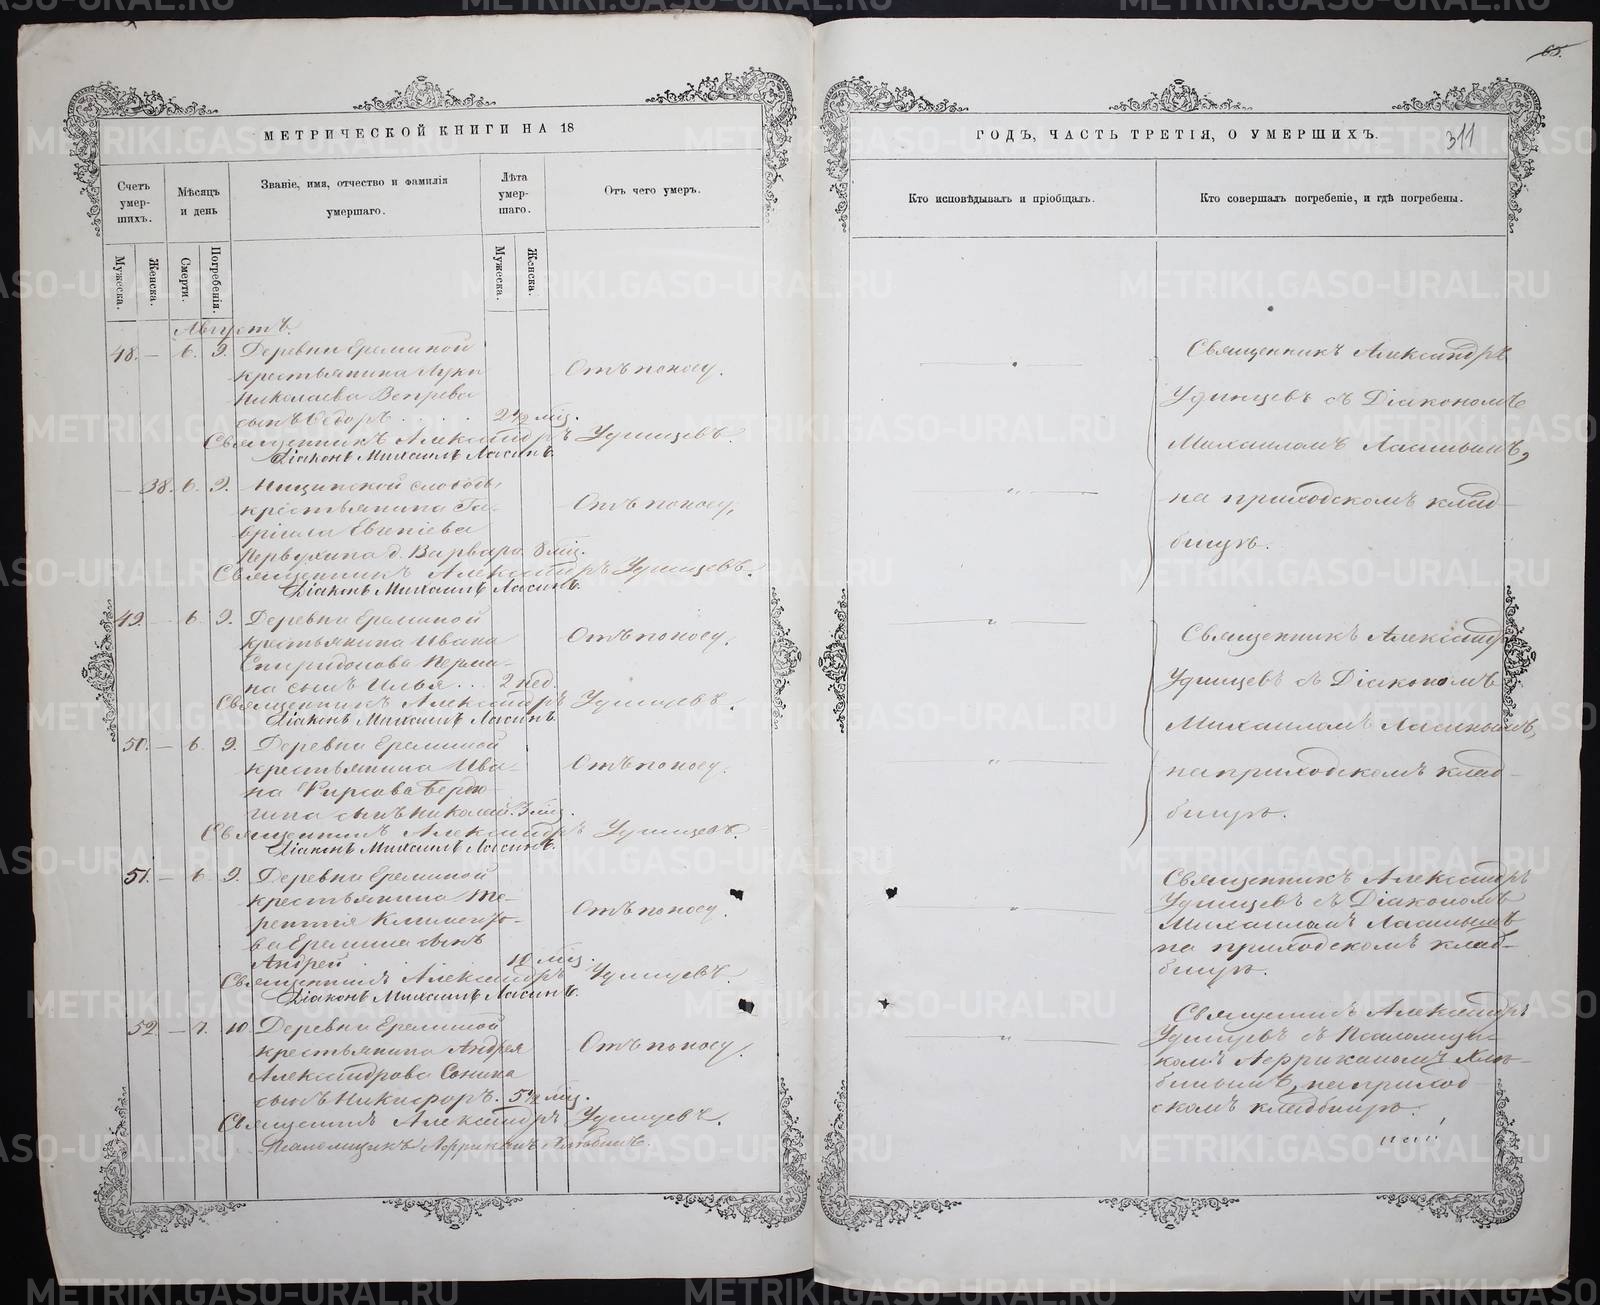 65.
311
МЕТРИЧЕСКОЙ КНИГИ НА 18
ГОДЪ, ЧАСТЬ ТРЕТІЯ, О УМЕРШИХЪ.
Счетъ умер-шихъ.
Мѣсяцъ и день
Званіе, имя, отчество и фамилія умершаго.
Лѣта умер-шаго.
Отъ чего умеръ.
Кто исповѣдывалъ и пріобщалъ.
Кто совершалъ погребеніе, и гдѣ погребены.
Мужеска.
Женска.
Смерти.
Погребенія.
Мужеска.
Женска.
Августъ.
48. — 6. 9. Деревни Ереминой
крестьянина Луки
Николаева Вепрева
сынъ Ѳедоръ . . . . 2 1/2 мѣс.
Отъ поносу.
Священникъ Александръ Удинцевъ.
Діаконъ Михаилъ Ласинъ.
— 38. 6. 9. Ницинской слободы
крестьянина Га-
вріила Евгеніева
Первухина д. Варвара. 8 мѣс.
Отъ поносу.
Священникъ Александръ Удинцевъ.
Діаконъ Михаилъ Ласинъ.
49. — 6. 9. Деревни Ереминой
крестьянина Ивана
Спиридонова Перми-
на сынъ Илья . . . 2 нед.
Отъ поносу.
Священникъ Александръ Удинцевъ.
Діаконъ Михаилъ Ласинъ.
50. — 6. 9. Деревни Ереминой
крестьянина Ива-
на Фирсова Бердю-
гина сынъ Николай. 3 мѣс.
Отъ поносу.
Священникъ Александръ Удинцевъ.
Діаконъ Михаилъ Ласинъ.
51. — 6. 9. Деревни Ереминой
крестьянина Те-
рентія Климентo-
ва Еремина сынъ
Андрей . . 10 мѣс.
Отъ поносу.
Священникъ Александръ Удинцевъ.
Діаконъ Михаилъ Ласинъ.
52 — 7. 10. Деревни Ереминой
крестьянина Андрея
Александрова Сонина
сынъ Никифоръ. 5 1/2 мѣс.
Отъ поносу.
Священникъ Александръ Удинцевъ.
Псаломщикъ Африканъ
Священникъ Александръ
Удинцевъ съ Діакономъ
Михаиломъ Ласинымъ,
на приходскомъ клад-
бищѣ.
Священникъ Александръ
Удинцевъ съ Діакономъ
Михаиломъ Ласинымъ,
на приходскомъ клад-
бищѣ.
Священникъ Александръ
Удинцевъ съ Діакономъ
Михаиломъ Ласинымъ
на приходскомъ клад-
бищѣ.
Священникъ Александръ
Удинцевъ съ Псаломщи-
комъ Африканомъ
на приход-
скомъ кладбищѣ.
METRIKI.GASO-URAL.RU